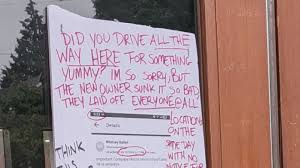 DID YOU DRIVE ALL THE
WAY HERE FOR SOMETHING
YUMMY? IM SO SORRY, BUT
THE NEW OWNER SUNK IT SO BAD
THEY LAID OFF EVERYONE @ ALL
LOCATIONS
ON THE
SAME DAY
WITH NO
NOTICE
THINK
Details